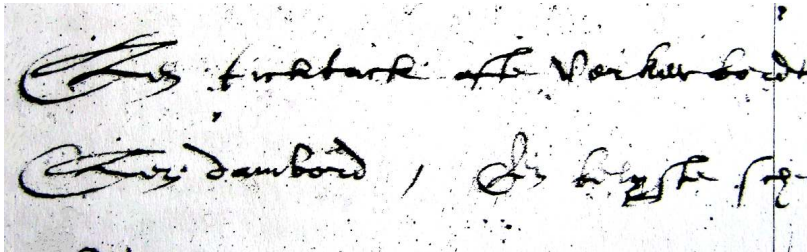 Een ticktack ofte Verkeerbordt
Een dambord, Een belyste sch